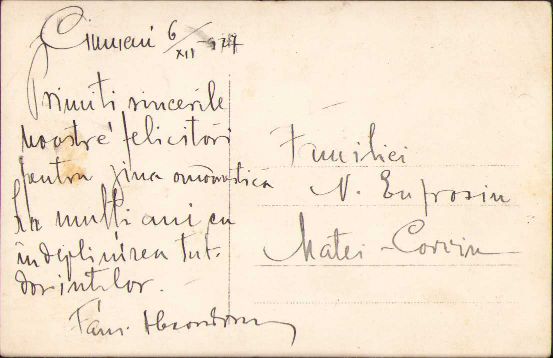 6/XII-927
Primiti sincerile
noastre felicitări
pentru ziua onomastica
La multi ani cu
îndeplinirea tut.
dorintelor.
Fam.
Familiei
N. Eufrosin
Matei-Corvin